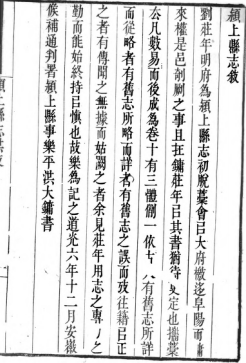 潁上縣志敘
劉莊年明府為潁上縣志初脫藁會㠯大府檄迻阜陽而
來權是邑剞劂之事且拄鏞莊年㠯其書猶待 定也攜藁
去凡數易而後成為卷十有三體例一依 有舊志所詳
而從略者有舊志所略而詳者有舊志之誤而攷往籍㠯正
之者有傳聞之無據而姑闕之者余見莊年用志之專
勤而能始終持㠯慎也故樂為記之道光六年十二月安徽
候補通判署潁上縣事樂平洪大鏞書